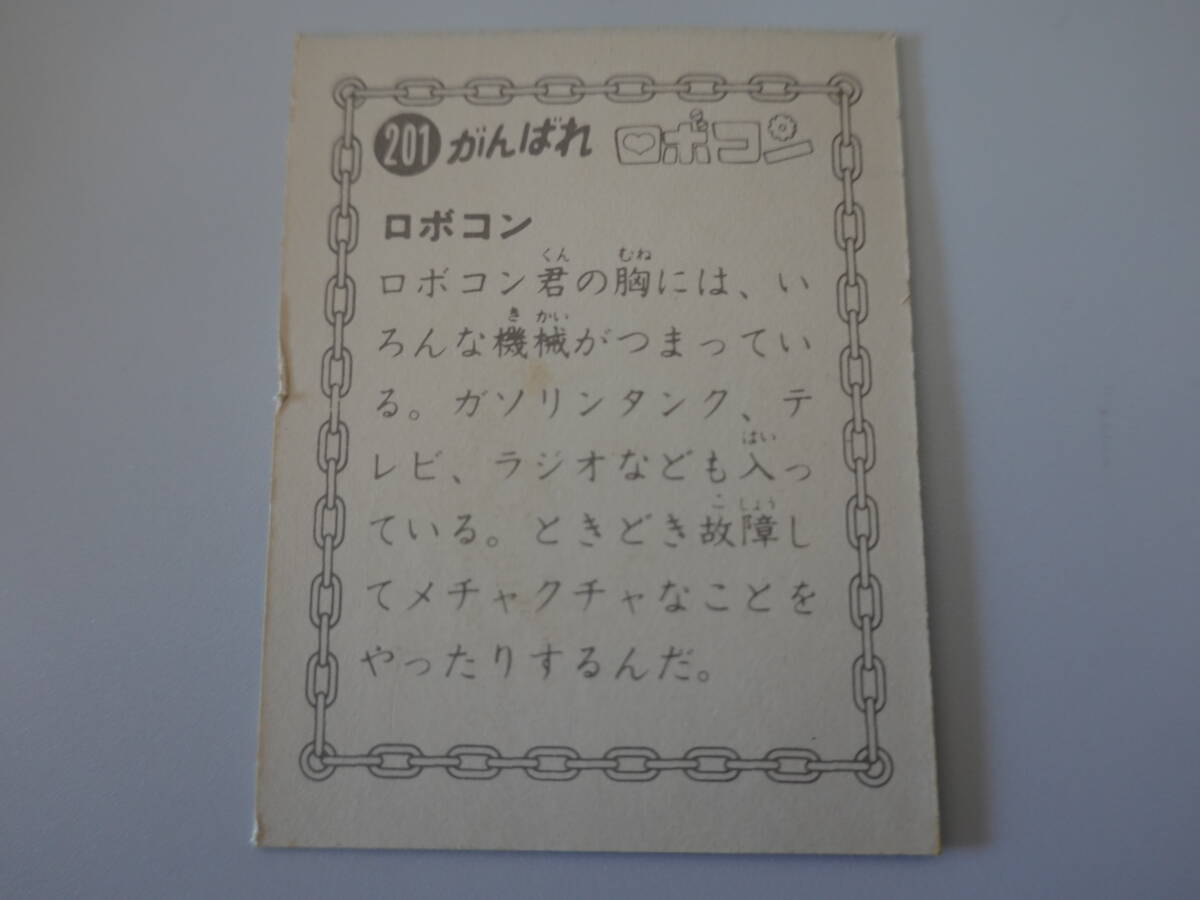 201 がんばれ ロボコン
ロボコン
ロボコン君の胸には、い
ろんな機械がつまってい
る。ガソリンタンク、テ
レビ、ラジオなども入っ
ている。ときどき故障し
てメチャクチャなことを
やったりするんだ。